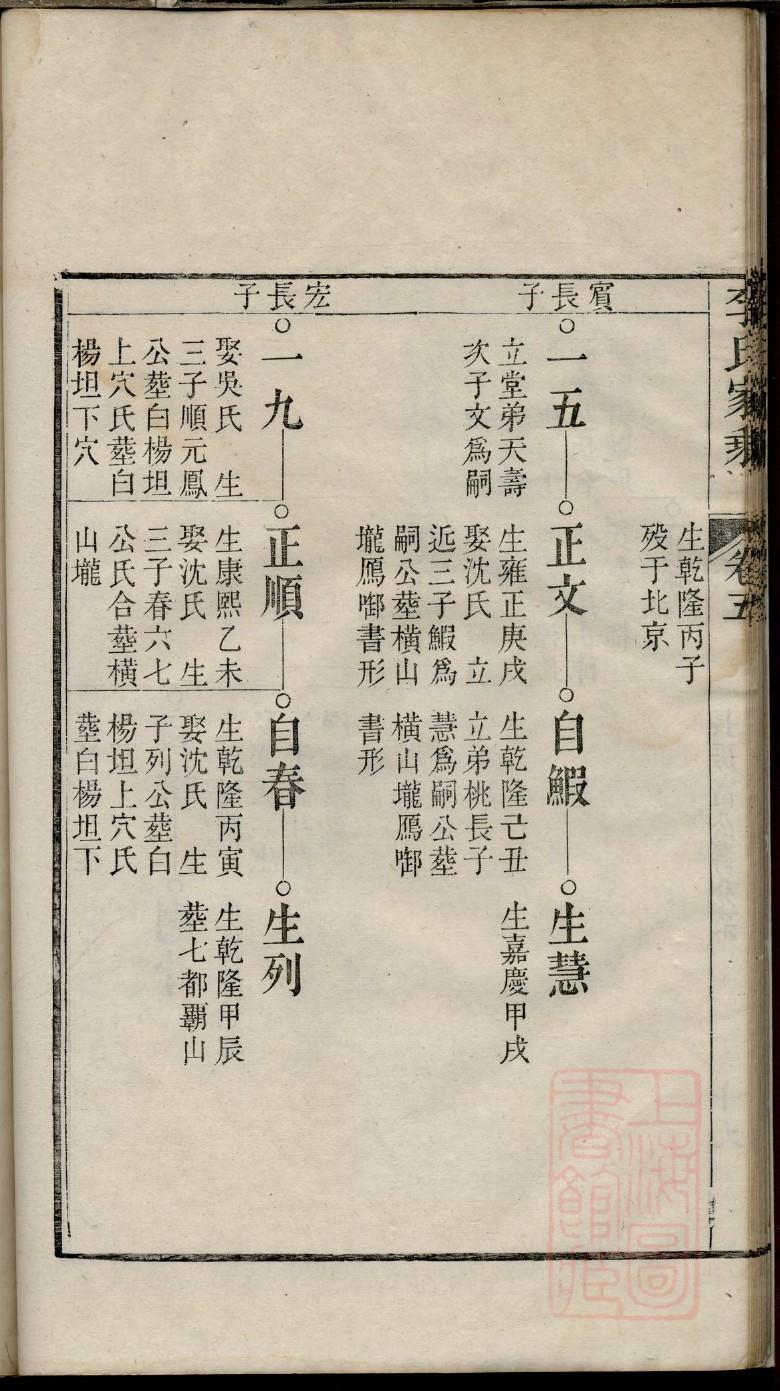 李氏家乘
卷五
生乾隆丙子
殁于北京
賓長子
一五
立堂弟天壽
次子文爲嗣
正文
生雍正庚戌
娶沈氏 立
近三子鰕爲
嗣公塟横山
壠鴈啣書形
自鰕
生乾隆己丑
立弟桃長子
慧爲嗣公塟
横山壠鴈啣
書形
生慧
生嘉慶甲戌
宏長子
一九
娶吳氏 生
三子順元鳳
公塟白楊坦
上穴氏塟白
楊坦下穴
正順
生康熙乙未
娶沈氏 生
三子春六七
公氏合塟横
山壠
自春
生乾隆丙寅
娶沈氏 生
子列公塟白
楊坦上穴氏
塟白楊坦下
生列
生乾隆甲辰
塟七都覇山
上海圖書館藏